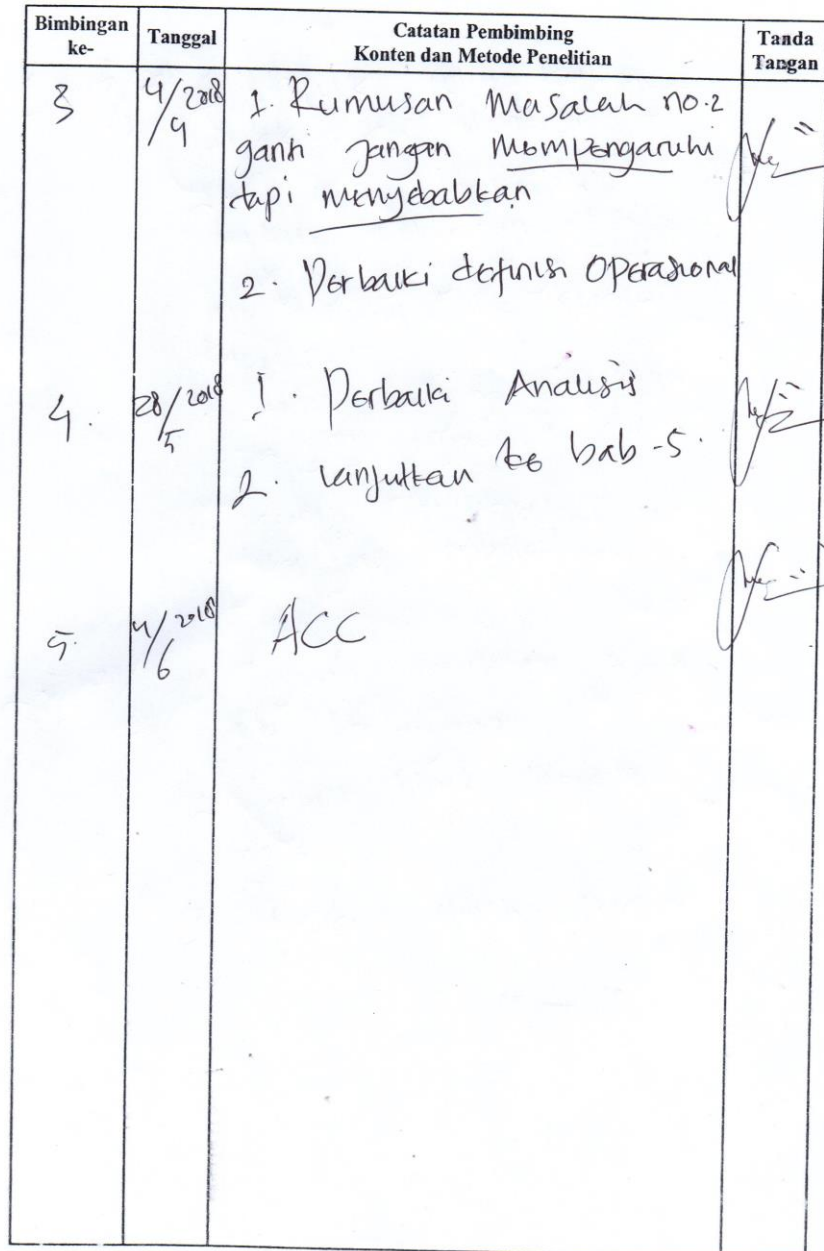 Bimbingan ke- Tanggal Catatan Pembimbing Konten dan Metode Penelitian Tanda Tangan
3 4/4 2018 1. Rumusan Masalah no.2
ganti Jangan Mempengaruhi
tapi menyebabkan
2. Perbaiki definisi Operasional
4. 28/5 2018 1. Perbaiki Analisis
2. lanjutkan ke bab -5.
5. 4/6 2018 ACC